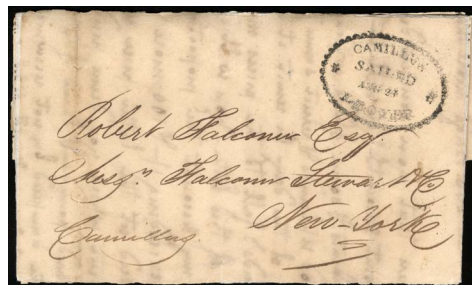 CAMILLUS
SAILED
Robert Falconer Esq.
Messrs. Falconer Stewart & Co
New-York
Camillus